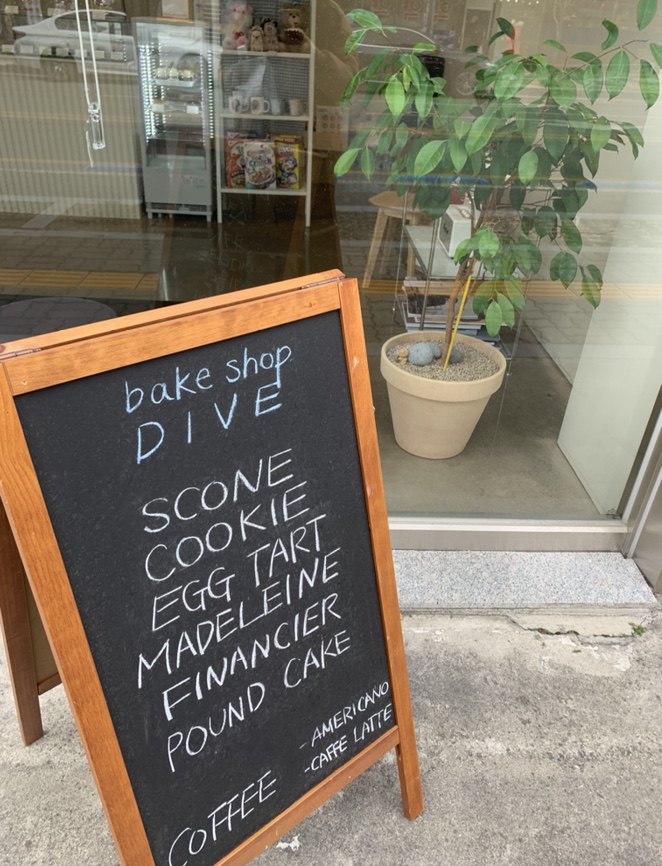 bake shop
DIVE
SCONE
COOKIE
EGG TART
MADELEINE
FINANCIER
POUND CAKE
COFFEE
-AMERICANO
-CAFFE LATTE